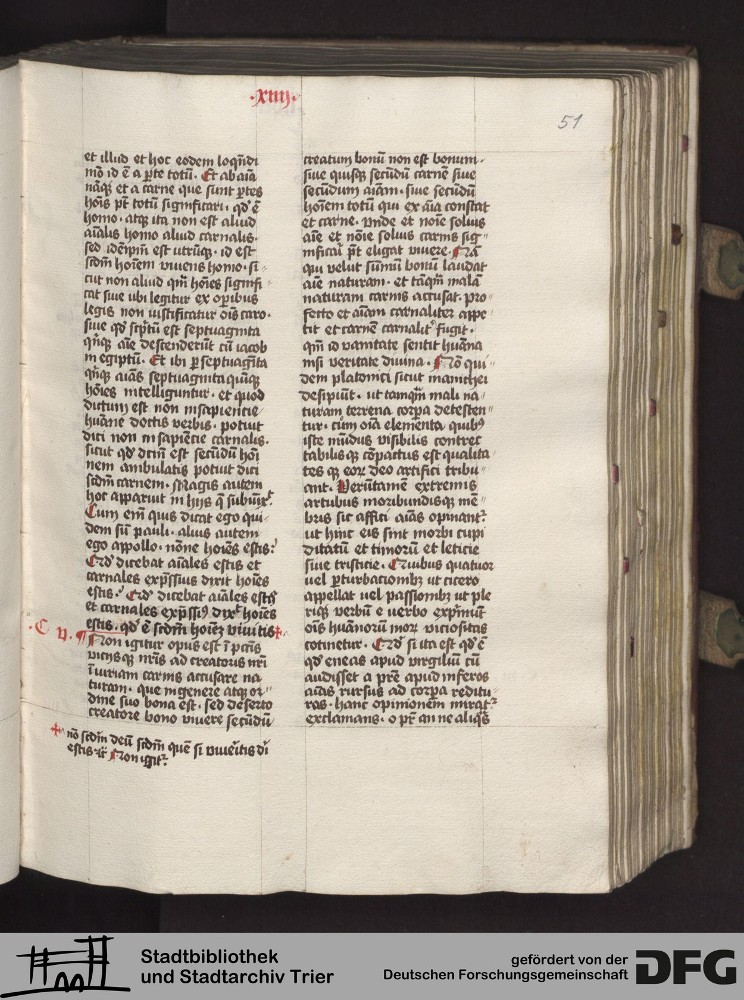 ·xiiij·
51
et illud et hoc eodem loquēdi
mō id ē a ꝑte totū. Et ab aīa
nāqꝫ et a carne que sunt ꝑtes
hoīs pt̄ totū significari. qd' ē
homo. atqꝫ ita non est aliud
aīalis homo aliud carnalis.
sed idēip̄m est utrūqꝫ. id est
scdm̄ hoīem viuens homo. si
cut non aliud qm̄ hoīes signifi
cat siue vbi legitur ex oꝑibus
legis non iustificatur oīs caro.
siue qd' sc̄ptū est septuaginta
qīqꝫ aīe descenderūt cū iacob
in egiptū. Et ibi ꝑ septuagīta
qīqꝫ aīas septuaginta quīqꝫ
hoīes intelliguntur. et quod
dictum est non in sapientie
huāne doctis verbis. potuit
dici non in sapiēcie carnalis.
sicut qd' dc̄m est secūdū hoī
nem ambulatis potuit dici
scdm̄ carnem. Magis autem
hoc apparuit in hijs q̄ subiūxᵗ.
Cum em̄ quis dicat ego qui
dem sū pauli. alius autem
ego appollo. nōne hoīes estis?
Crd' dicebat aīales estis et
carnales exp̄ssius dixit hoīes
estis. Crd' dicebat aīales estis
et carnales exp̄ssiꝰ dixᵗ hoīes
estis. qd' ē scdm̄ hoīeꝫ viuitis +
·C v. ¶ Non igitur opus est ī pctīs
vicijsqꝫ nr̄is ad creatoris nr̄i
īiuriam carnis accusare na
turam. que in genere atqꝫ or
dine suo bona est. sed deserto
creatore bono viuere secūdū
+ nō scdm̄ deū scdm̄ quē si viueretis di
estis Non igit᷑
creatum bonū non est bonum.
siue quisqꝫ secūdū carnē siue
secūdum aīam. siue secūdū
hoīem totū qui ex aīa constat
et carne. vnde et noīe solius
aīe et noīe solius carnis sig
nificari pt̄ eligat viuere. Nā
qui velut sūmū bonū laudat
aīe naturam. et tāqm̄ malā
naturam carnis accusat. pro
fecto et aīam carnaliter appe
tit et carnē carnalit᷑ fugit.
qm̄ id vanitate sentit huāna
nō veritate diuina. Nō qui
dem platonici sicut manichei
desipiūt. ut tamqm̄ mali na
turam terrena corꝑa detesten
tur. cum oīa elementa quibꝰ
iste mūdus visibilis contrec
tabilisqꝫ cōpactus est qualita
tesqꝫ eoꝝ deo artifici tribu
ant. Verūtamē extremis
artubus moribundisqꝫ mē
bris sic affici aīas opinant᷑
ut hinc eis sint morbi cupi
ditatū et timorū et leticie
siue tristicie. Quibus quatuor
vel ꝑturbacionibꝫ ut cicero
appellat vel passionibꝫ ut ple
riqꝫ verbū e verbo exp̄mūt
oīs huānorū moꝝ viciositas
cotinetur. Crd' si ita est qd' ē
qd' eneas apud virgiliū cū
audisset a prē apud inferos
aīas rursus ad corꝑa reditu
ras. hanc opinionem mirat᷑
exclamans. o pr̄ an ne aliqꝫ
Stadtbibliothek
und Stadtarchiv Trier
gefördert von der
Deutschen Forschungsgemeinschaft
DFG